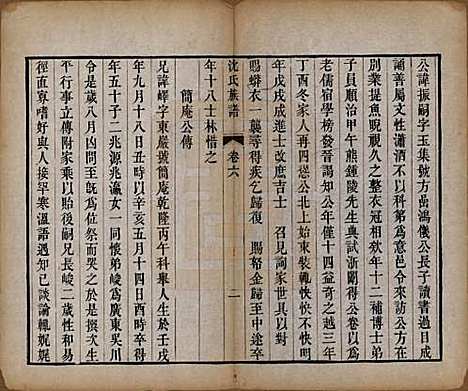 公諱振嗣字玉集號方喦鴻儀公長子讀書過目成
誦善屬文性灑落不以科第為意邑令許君偶過
別業提罷睨視久之整衣冠相欵年十二補博士弟
子員順治甲午熊鍾陵先生典試浙闈得公卷以為
老儒宿學榜發晉謁知公年僅十四益奇之越三年
丁酉冬家人再四慫公北上始束裝輒怏怏不樂明
年戊戌成進士改庶吉士 召見詢家世具以對
賜蟒衣一襲尋得疾乞歸復 賜帑金歸至中途卒
年十八士林惜之
沈氏族譜 卷六 二
簡庵公傳
兄諱嶧字東嚴號簡庵乾隆丙午科舉人生於壬戌
年九月十八日丑時以辛亥五月十四日酉時卒得
年五十子二兆源兆瀛女一同懷弟峻為廣東吳川
令是歲八月凶問至旣為位祭而哭之於是撰次生
平行事立傳附家乘以貽後嗣兄長峻二歲性和易
徑直寡嗜好與人接罕寒溫語遇知己談論輒娓娓